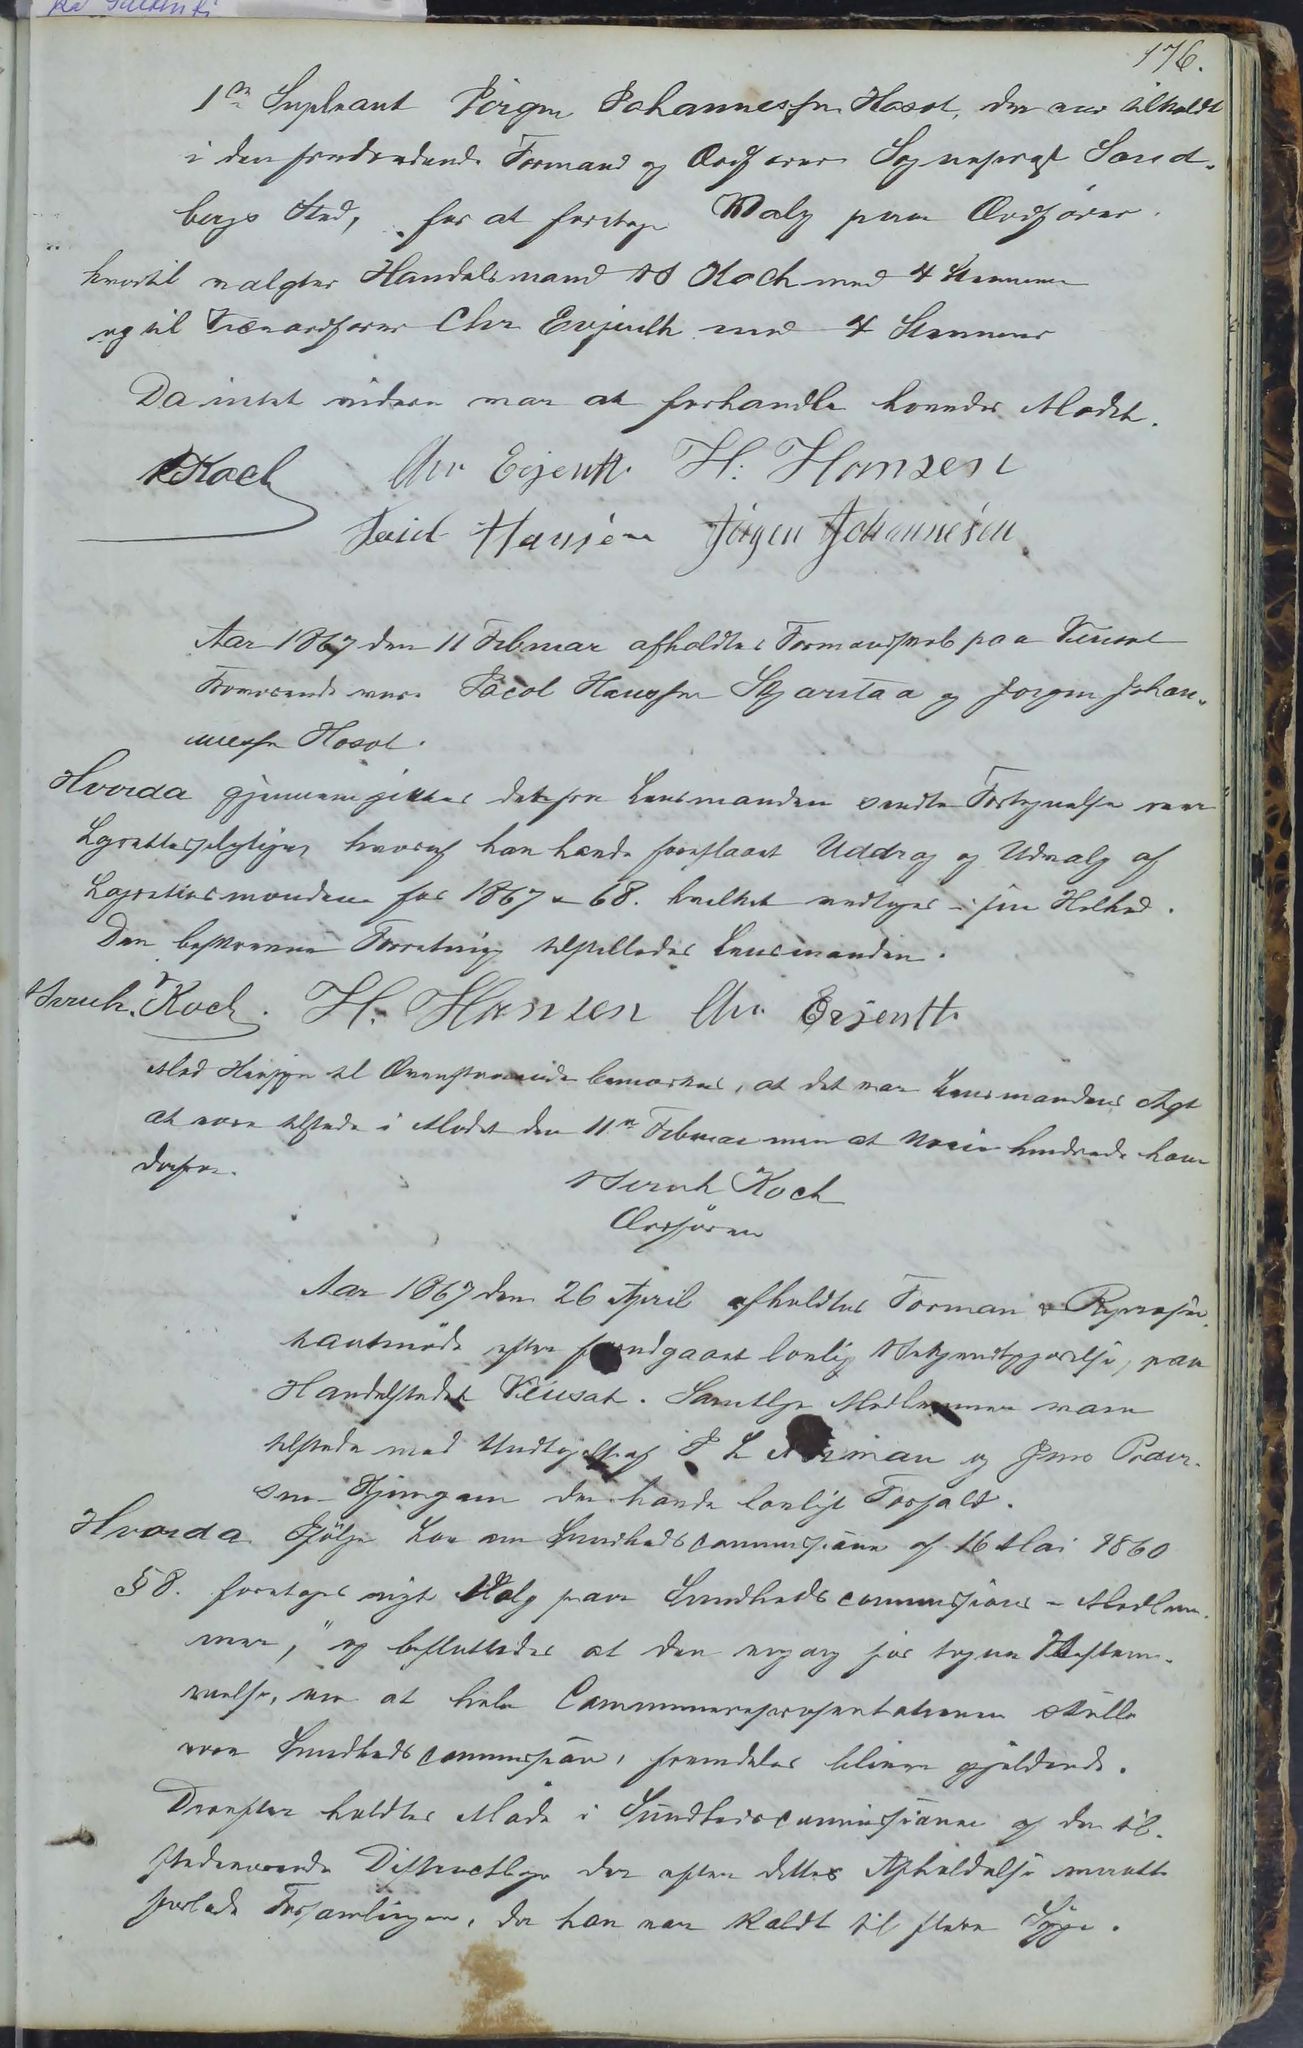 176.
1ste Supleant Jörgen Johannessen Hosot, der var tilkaldt
i den fratrædende Formand og Ordförer Sogneprest Sand-
bergs Sted, for at foretage Walg paa Ordförer.
hvortil valgtes Handelsmand B Koch med 4 Stemmer
og til Viceordförer Chr Evjenth med 4 Stemmer
Da intet videre var at forhandle hævedes Mödet.
B Koch Chr Evjenth. H. Hansen
Hansen Jörgen Johannesen
Aar 1867 den 11 Februar afholdtes Formandskab paa
Fraværende vare Jacob Hansen Skjærstaa og Jörgen Johan-
nessen Hosot.
Hvorda gjennemgikkes det fra Lensmanden sendte Fortegnelse over
Lagrettespligtige, hvoraf han havde foreslaaet Uddrag og Udvalg af
Lagrettesmændene for 1867 - 68. hvilket vedtoges i sin Helhed.
Den beskrevne Forretning tilstilledes Lensmanden.
Bernh. Koch. H. Hansen Chr Evjenth.
Med Hensyn til Ovenstaaende bemærkes, at det var Lensmandens Agt
at være tilstede i Mödet den 11te Februar men at hindrede ham
derfra.
Bernh Koch
Ordförer
Aar 1867 den 26 April afholdtes Forman & Repræsen-
tantmöde efter forudgaaet lovlig Bekjendtgjörelse, paa
Handelstedet. Samtlige Medlemmer vare
tilstede med Undtagelse af J L og Jens Peder-
sen der havde lovligt Forfald.
Hvorda Ifölge Lov om Sundhedscommissioner af 16 Mai 1860
§ 8. foretoges nyt Valg paa Sundhedscommissions-Medlem-
mer, og besluttedes at den engang för tagne Bestem-
melse, om at hele Communerepræsentationen skulle
være Sundhedscommission, fremdeles bliver gjeldende.
Derefter holdtes Möde i Sundhedscommissionen af den til-
stedeværende Distriktslæge der efter dettes Afholdelse maatte
forlade Forsamlingen, da han var kaldt til flere Syge.